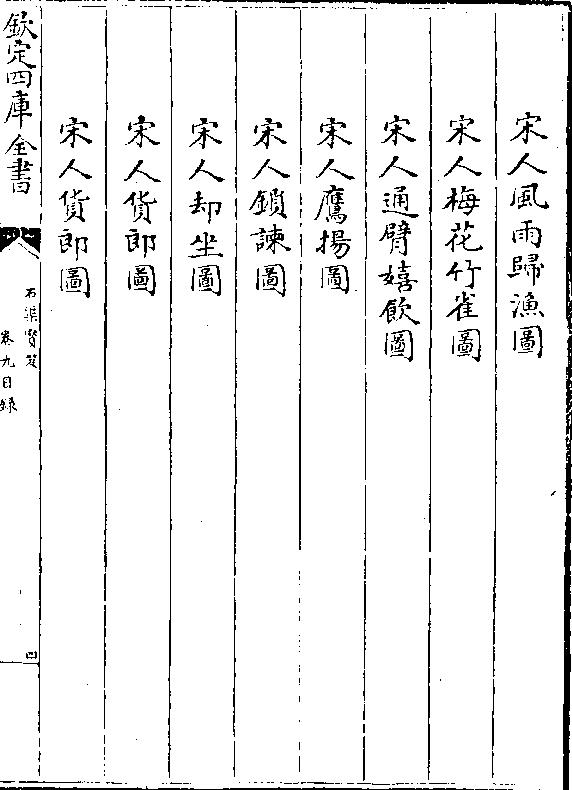 宋人風雨歸漁圖
宋人梅花竹雀圖
宋人通臂嬉飲圖
宋人鷹揚圖
宋人鎖諫圖
宋人却坐圖
宋人貨郎圖
宋人貨郎圖
欽定四庫全書
石渠寳笈
卷九目録
四